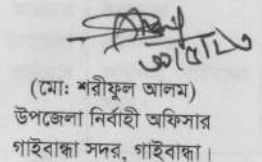 (মোঃ শরীফুল আলম)
উপজেলা নির্বাহী অফিসার
গাইবান্ধা সদর, গাইবান্ধা।